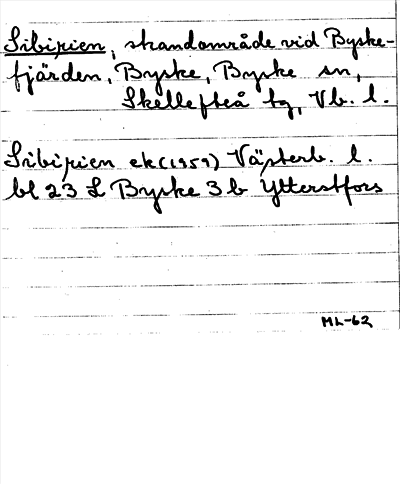 Sibirien, strandområde vid Byske-
fjärden, Byske, Byske sn,
Skellefteå tg, Vb. l.
Sibirien ek (1959) Västerb. l.
bl 23 L Byske 3 b Ytterstfors
ML-62